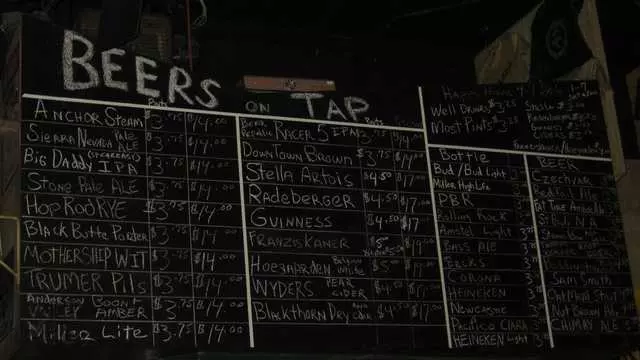 BEERS ON TAP
Pints
ANCHOR STEAM $3.75 $14.00
SIERRA NEVADA PALE ALE $3.75 $14.00
BIG DADDY IPA $3.75 $14.00
STONE PALE ALE $3.75 $14.00
HOP ROD RYE $3.75 $14.00
BLACK BUTTE PORTER $3.75 $14.00
MOTHERSHIP WIT $3.75 $14.00
TRUMER PILS $3.75 $14.00
ANDERSON VALLEY BOONT AMBER $3.75 $14.00
MILLER LITE $3.75 $14.00
BEAR Republic RACER 5 IPA $3.75 $14.00
DOWNTOWN BROWN $3.75 $14
STELLA ARTOIS $4.50 $17
RADEBERGER $4.50 $17
GUINNESS $4.50 $17
FRANZISKANER $5
HOEGAARDEN Belgian White $5 $17
WYDERS PEAR CIDER $4.50 $17
BLACKTHORN DRY
WELL DRINKS $3.25
MOST PINTS $3.25
BOTTLE
BUD/BUD LIGHT
MILLER HIGH LIFE
PBR
ROLLING ROCK
AMSTEL LIGHT
BASS ALE
BECKS
CORONA
HEINEKEN
NEWCASTLE
PACIFICO CLARA
HEINEKEN LIGHT
BEER
SAM SMITH
OATMEAL STOUT
NUT BROWN
CHIMAY ALE